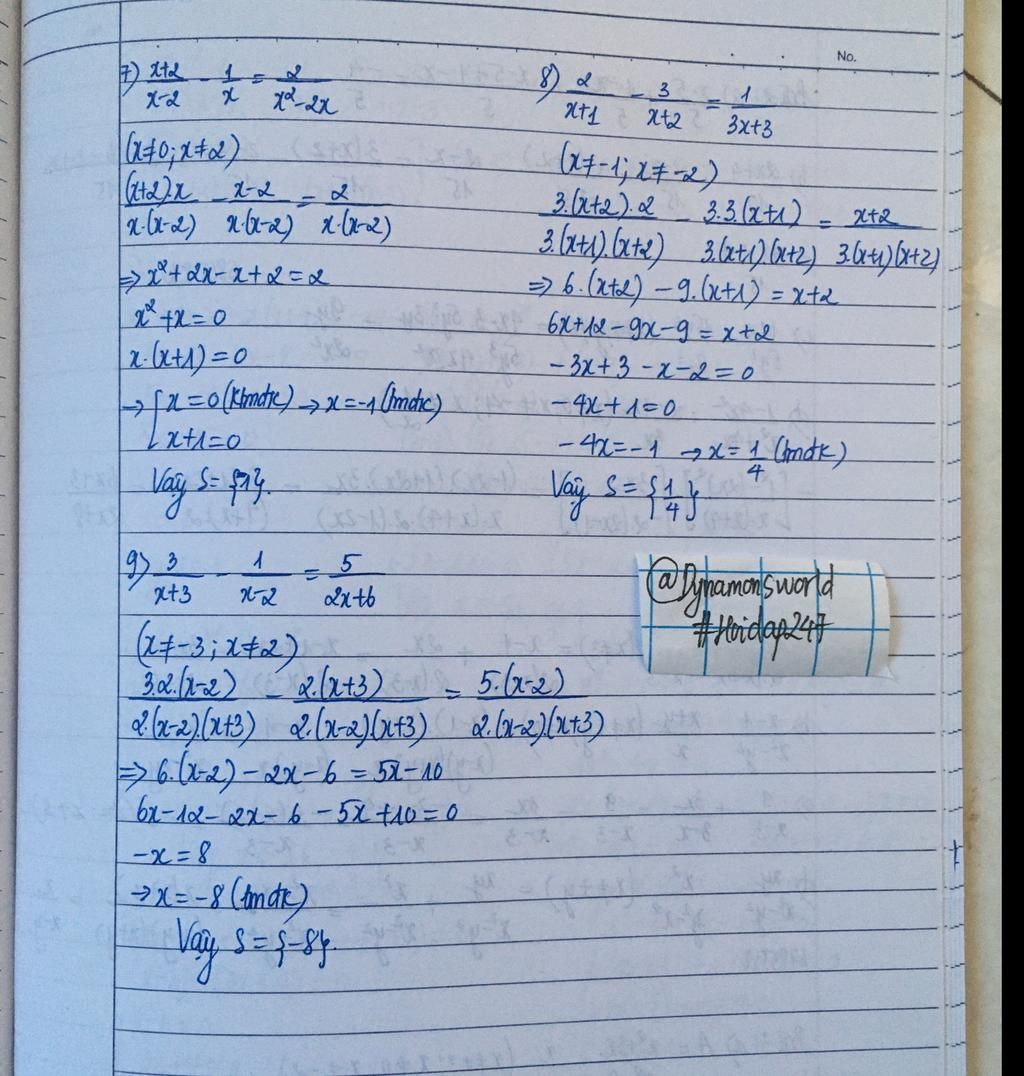 No.
7) \frac{x+2}{x-2} - \frac{1}{x} = \frac{2}{x^2-2x}
(x≠0; x≠2)
\frac{(x+2).x}{x.(x-2)} - \frac{x-2}{x.(x-2)} = \frac{2}{x.(x-2)}
⇒ x²+2x-x+2=2
x²+x=0
x.(x+1)=0
→ [x=0 (ktmđk) → x=-1 (tmđk)
x+1=0
Vậy S={-1}.
8) \frac{2}{x+1} - \frac{3}{x+2} = \frac{1}{3x+3}
(x≠-1; x≠-2)
\frac{3.(x+2).2}{3.(x+1).(x+2)} - \frac{3.3(x+1)}{3.(x+1)(x+2)} = \frac{x+2}{3.(x+1)(x+2)}
⇒ 6.(x+2) - 9.(x+1) = x+2
6x+12-9x-9 = x+2
-3x+3-x-2=0
-4x+1=0
-4x=-1 → x=\frac{1}{4} (tmđk)
Vậy S={\frac{1}{4}}
9) \frac{3}{x+3} - \frac{1}{x-2} = \frac{5}{2x+6}
(x≠-3; x≠2)
\frac{3.2.(x-2)}{2.(x-2).(x+3)} - \frac{2.(x+3)}{2.(x-2)(x+3)} = \frac{5.(x-2)}{2.(x-2).(x+3)}
⇒ 6.(x-2) - 2x - 6 = 5x-10
6x-12-2x-6-5x+10=0
-x=8
→ x=-8 (tmđk)
Vậy S={-8}.
@Dynamonsworld
#Hoidap247